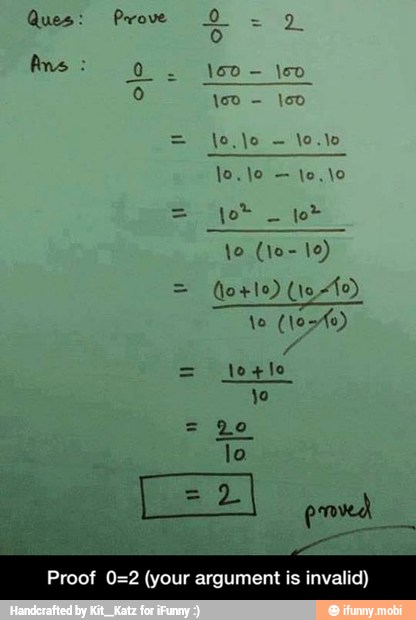 Ques: Prove 0/0 = 2
Ans : 0/0 = 100 - 100 / 100 - 100
= 10.10 - 10.10 / 10.10 - 10.10
= 10² - 10² / 10 (10 - 10)
= (10+10) (10-10) / 10 (10-10)
= 10 + 10 / 10
= 20 / 10
= 2
proved
Proof 0=2 (your argument is invalid)
Handcrafted by Kit__Katz for iFunny :)
ifunny.mobi